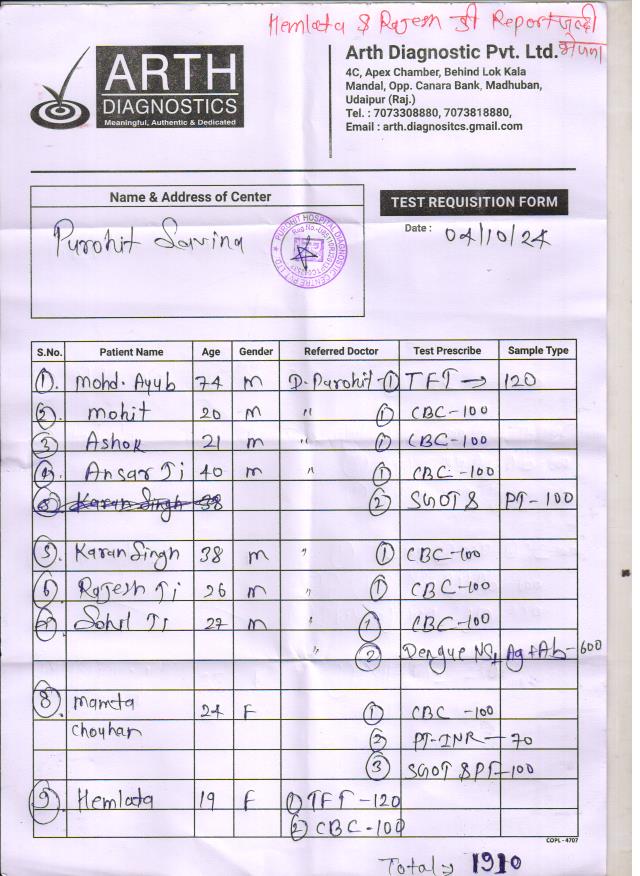 Hemlata & Rajesh की Report जल्दी
भेजना
ARTH
DIAGNOSTICS
Meaningful, Authentic & Dedicated
Arth Diagnostic Pvt. Ltd.
4C, Apex Chamber, Behind Lok Kala
Mandal, Opp. Canara Bank, Madhuban,
Udaipur (Raj.)
Tel. : 7073308880, 7073818880,
Email : arth.diagnositcs.gmail.com
Name & Address of Center
Purohit Savina
PUROHIT HOSPITAL DIAGNOSTIC CENTRE PVT. LTD.
TEST REQUISITION FORM
Date : 04/10/24
S.No. Patient Name Age Gender Referred Doctor Test Prescribe Sample Type
1. Mohd. Ayub 74 M D. Purohit - 1 TFT → 120
2. Mohit 20 M " 1 CBC-100
3. Ashok 21 M " 1 CBC-100
4. Ansar Ji 40 M " 1 CBC-100
5. Karan Singh 38 2 SGOT & PT-100
5. Karan Singh 38 M " 1 CBC-100
6. Rajesh Ji 26 M " 1 CBC-100
7. Sohil Ji 27 M 1 CBC-100
" 2 Dengue NS1 Ag + Ab-600
8. Mamta 24 F 1 CBC-100
Chouhan 2 PT-INR-70
3 SGOT & PT-100
9. Hemlata 19 F 1 TFT-120
2 CBC-100
COPL - 4707
Total → 1910